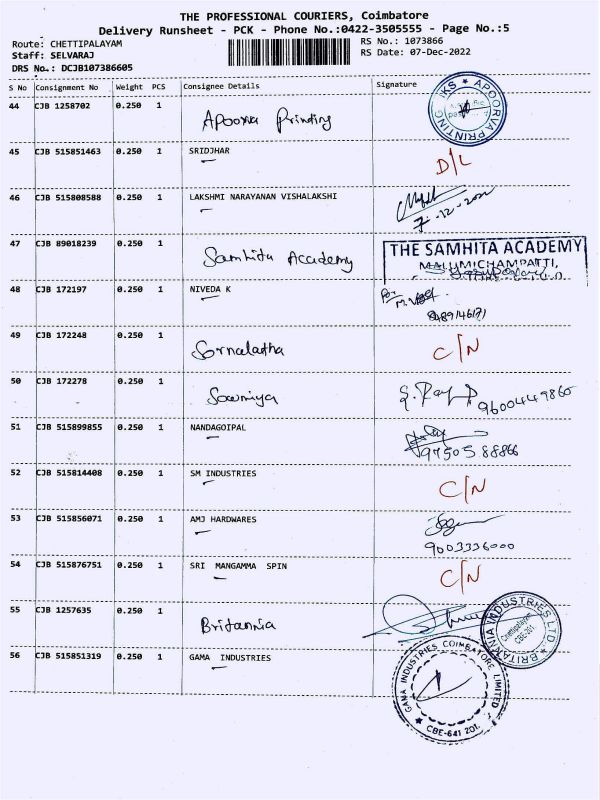 THE PROFESSIONAL COURIERS, Coimbatore
Delivery Runsheet - PCK - Phone No.:0422-3505555 - Page No.:5
Route: CHETTIPALAYAM
RS No.: 1073866
Staff: SELVARAJ
RS Date: 07-Dec-2022
DRS No.: DCJB107386605
S No Consignment No Weight PCS Consignee Details Signature
44 CJB 1258702 0.250 1 Apoorva Printing
APOORVA PRINTING INKS
45 CJB 515851463 0.250 1 SRIDJHAR D/L
46 CJB 515808588 0.250 1 LAKSHMI NARAYANAN VISHALAKSHI
7-12-2022
47 CJB 89018239 0.250 1 Samhita Academy
THE SAMHITA ACADEMY
MALUMICHAMPATTI,
48 CJB 172197 0.250 1 NIVEDA K
49 CJB 172248 0.250 1 C/N
50 CJB 172278 0.250 1 Sowmiya
9600449860
51 CJB 515899855 0.250 1 NANDAGOIPAL
9750588866
52 CJB 515814408 0.250 1 SM INDUSTRIES C/N
53 CJB 515856071 0.250 1 AMJ HARDWARES
9003336000
54 CJB 515876751 0.250 1 SRI MANGAMMA SPIN C/N
55 CJB 1257635 0.250 1 Britannia
BRITANNIA INDUSTRIES LTD
Chettipalayam
CBE-201.
56 CJB 515851319 0.250 1 GAMA INDUSTRIES
GAMA INDUSTRIES COIMBATORE LIMITED
CBE-641 201.